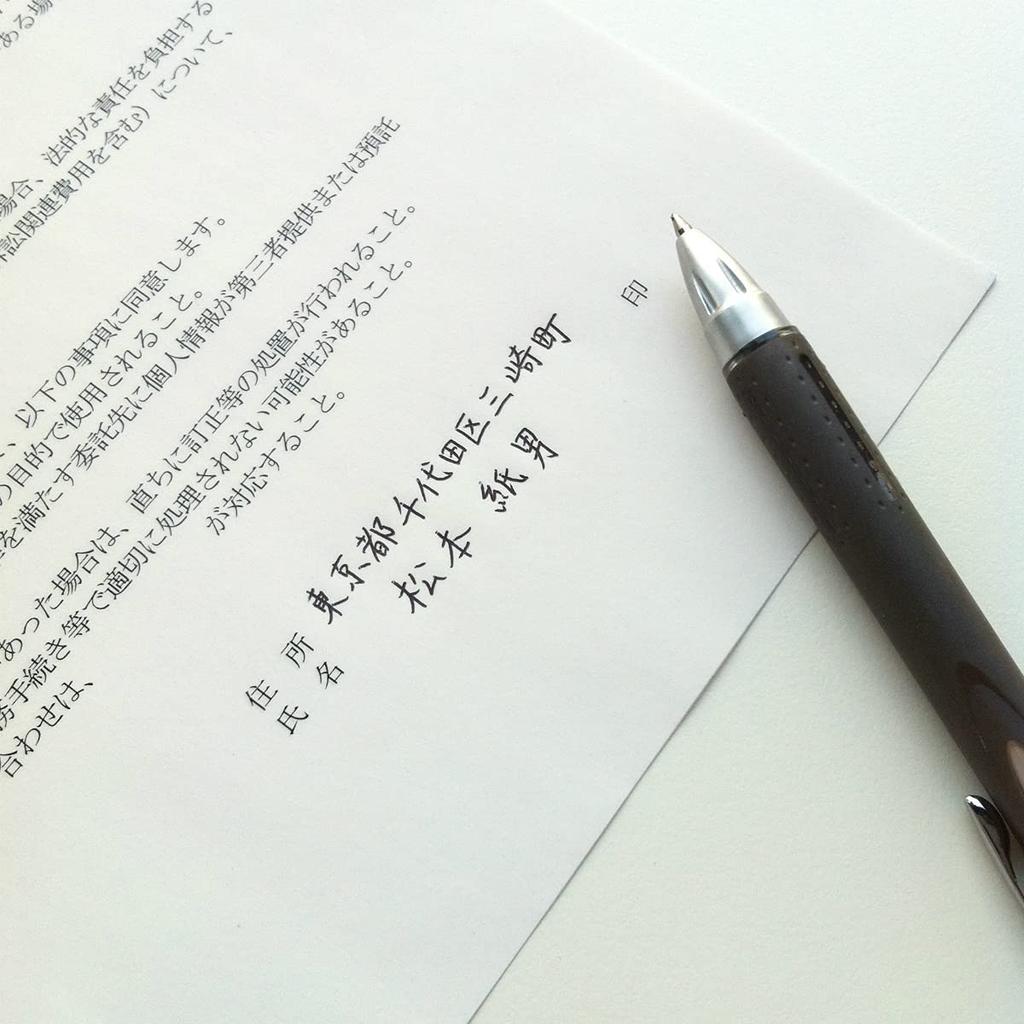 ある場
場合、法的な責任を負担する
訟関連費用を含む）について、
、以下の事項に同意します。
の目的で使用されること。
を満たす委託先に個人情報が第三者提供または預託
あった場合は、直ちに訂正等の処置が行われること。
務手続き等で適切に処理されない可能性があること。
合わせは、
が対応すること。
住所 東京都千代田区三崎町
氏名 松本 紙男
印